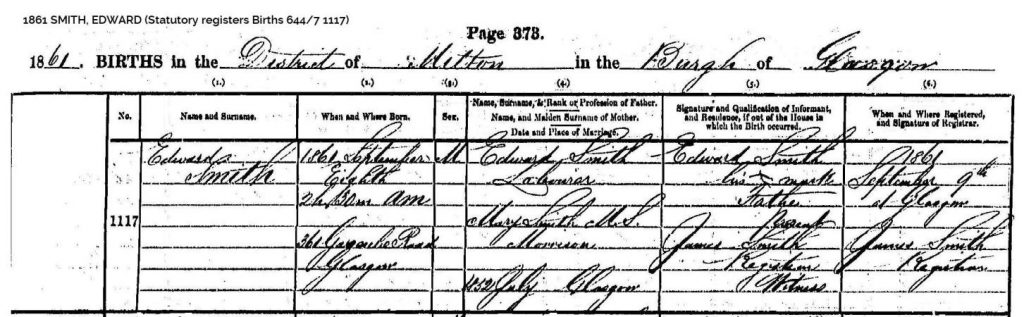 1861 SMITH, EDWARD (Statutory registers Births 644/7 1117)
Page 373.
1861. BIRTHS in the District of Milton in the Burgh of Glasgow
(1.) (2.) (3.) (4.) (5.) (6.)
No.
Name and Surname.
When and Where Born.
Sex.
Name, Surname, & Rank or Profession of Father.
Name, and Maiden Surname of Mother.
Date and Place of Marriage.
Signature and Qualification of Informant,
and Residence, if out of the House in
which the Birth occurred.
When and Where Registered,
and Signature of Registrar.
1117
Edward
Smith
1861 September
Eighth
2h 30m am
361 Road
Glasgow
M
Edward Smith
Labourer
Mary Smith M.S.
Morrison
1852 July Glasgow
Edward Smith
his X mark
Father
Present
James Smith
Registrar
Witness
1861
September 9th
at Glasgow
James Smith
Registrar